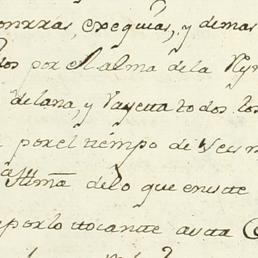 onrras, exequias, y demas
dos por el alma de la Rey
de lana, y Vayeta todos los
por el tiempo de seis m
Alma de lo que enesste
por lo tocante aesta